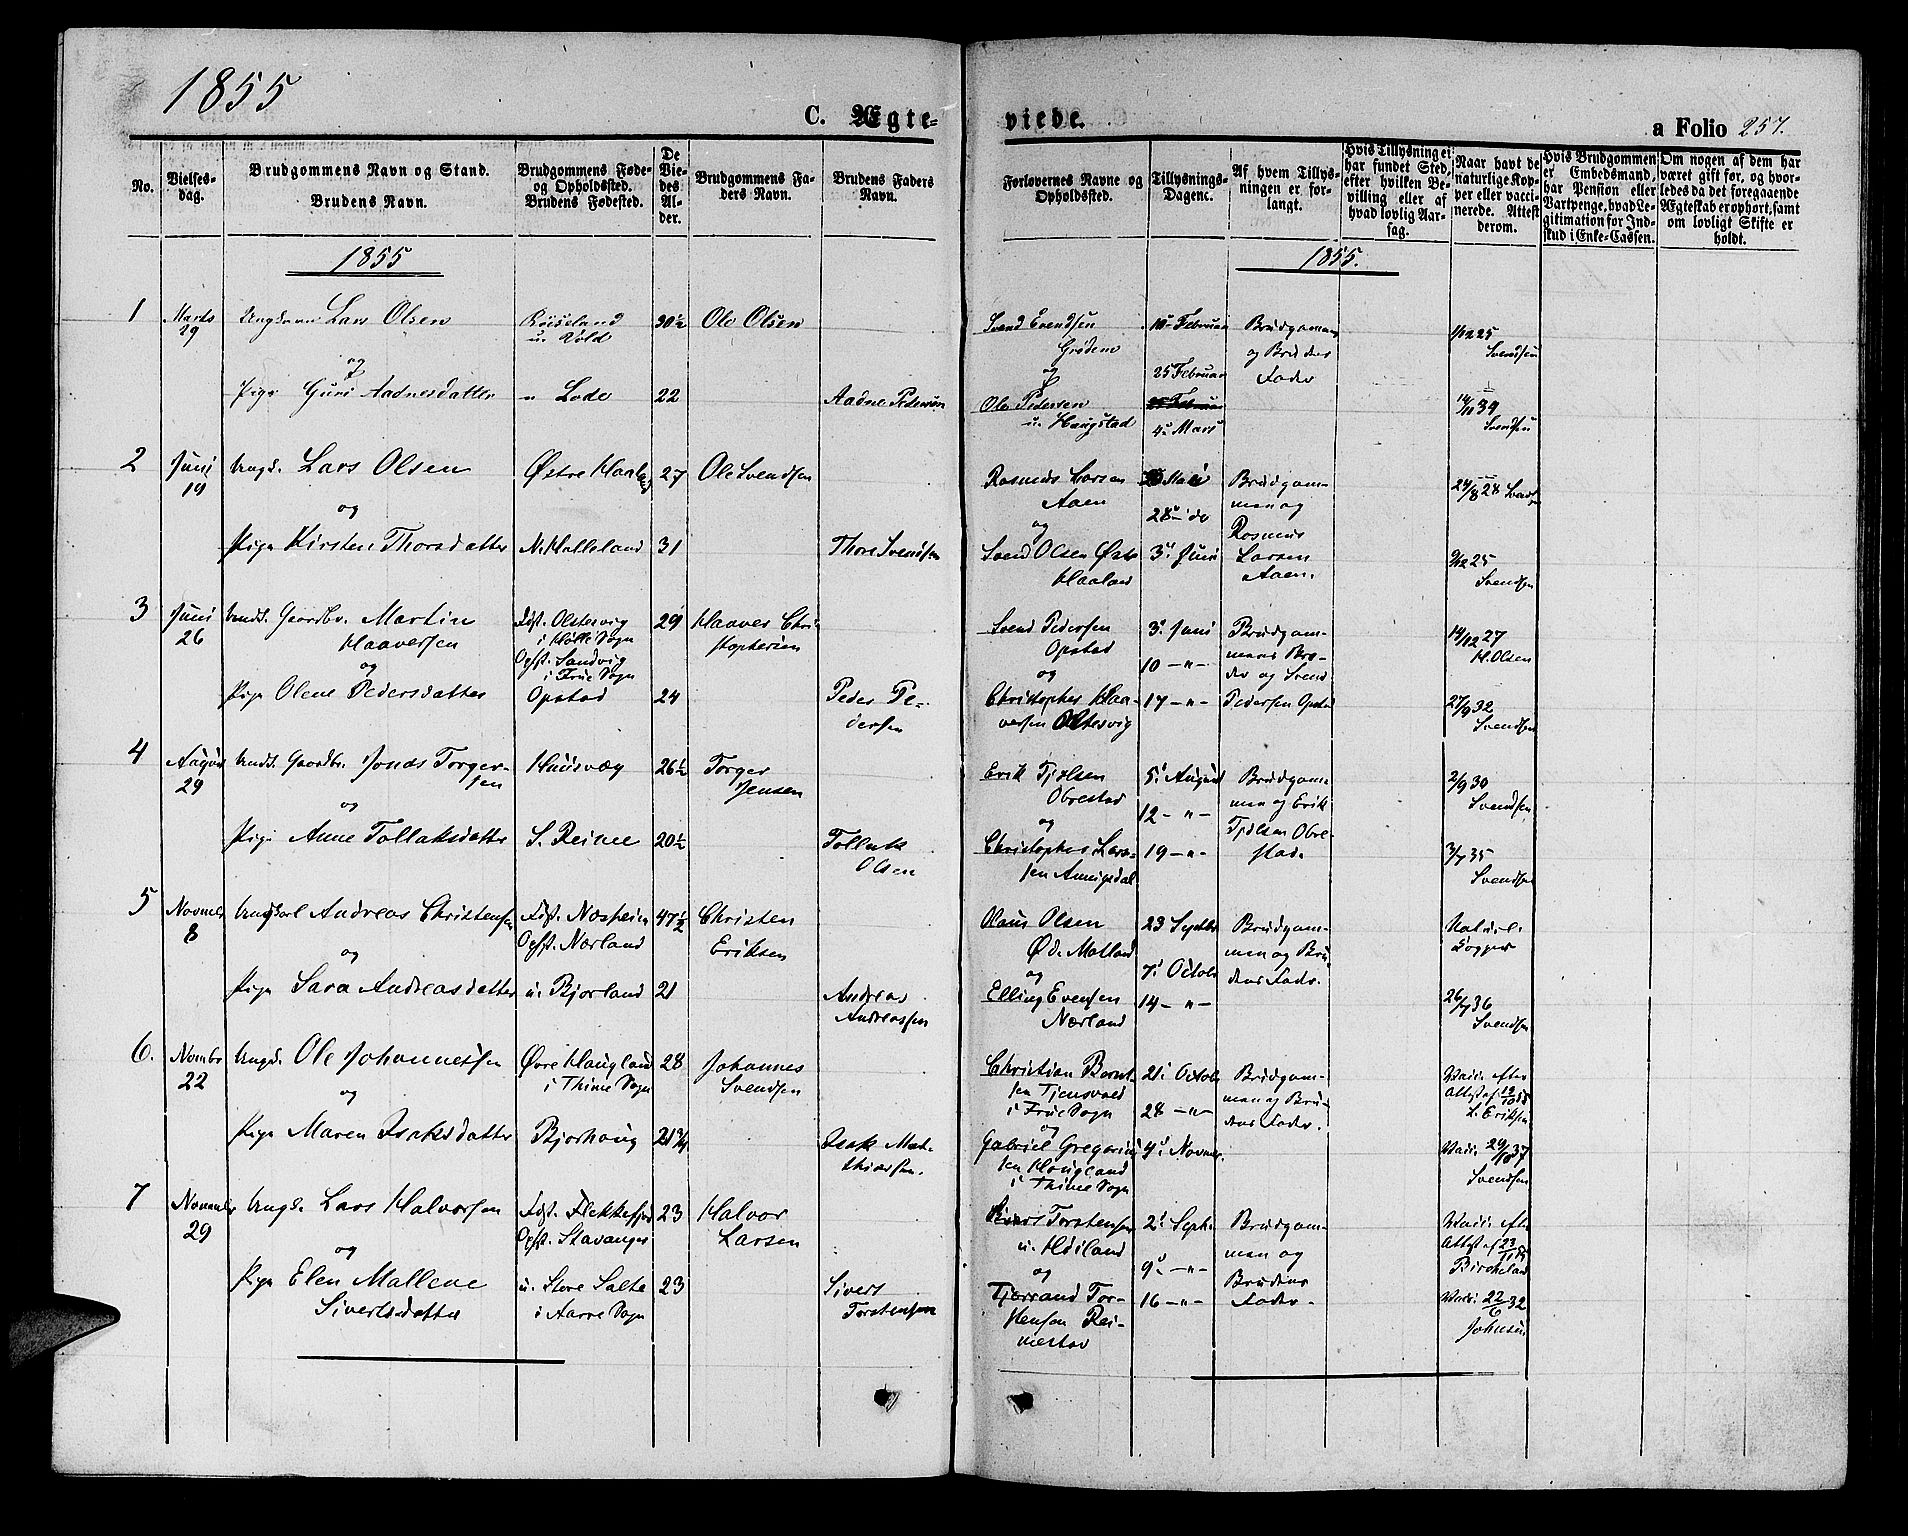 1855
C. Ægte-
viede.
a Folio 257.
No.
Vielses-
dag.
Brudgommens Navn og Stand.
Brudens Navn.
Brudgommens Føde-
og Opholdssted.
Brudens Fødested.
De
Vie-
des
Al-
der.
Brudgommens Fa-
ders Navn.
Brudens Faders
Navn.
Forlovernes Navne og
Opholdssted.
Tillysnings-
Dagene.
Af hvem Tillys-
ningen er for-
langt.
Hvis Tillysning ei
har fundet Sted,
efter hvilken Be-
villing eller af
hvad lovlig Aar-
sag.
Naar havt de
naturlige Kop-
per eller vacci-
nerede. Attest
derom.
Hvis Brudgommen
er Embedsmand,
har Pension eller
Vartpenge, hvad Le-
gitimation for Ind-
skud i Enke-Cassen.
Om nogen af dem har
været gift før, og hvor-
ledes da det foregaaende
Ægteskab er ophørt, samt
om lovligt Skifte er
holdt.
1855
1855.
1
Marts
29
Ungkarl Lars Olsen
og
Pige Guri Aadnesdatter
u. Vold
u Lode
30½
22
Ole Olsen
Aadne Pedersen
Svend Svendsen
Grødem
og
Ole Pedersen
u. Haugstad
18 Februar
25 Februar
4 Mars
Brudgommen
og Brudens
Fader
1/12 25
Svendsen
14/11 39
Svendsen
2
Juni
19
Ungk. Lars Olsen
og
Pige Kirsten Thorsdatter
Østre Haaland
N. Kalleland
27
31
Ole Svendsen
Thore Svendsen
Rasmus Larsen
Aaen
og
Svend Olsen Øst
Haaland
Mai
28 do
3 Juni
Brudgom-
men og
Rasmus
Larsen
Aaen.
24/8 28 Svendsen
9/12 25
Svendsen
3
Juni
26
Gaardbr. Martin
Haaversen
og
Pige Olene Pedersdatter
Fdst. Oltesvig
i Hølle Sogn
Ophst. Sandvig
i Frue Sogn
Opstad
29
24
Haaver Chri
stophersen
Peder Pe-
dersen
Svend Pedersen
Opstad
og
Christopher Haa-
versen Oltesvig
3 Juni
10 - " -
17 - " -
Brudgom-
mens Bro-
der og Svend
Pedersen Opstad
14/12 27
H. Olsen
27/9 32
Svendsen
4
August
29
Gaardbr. Jonas Torger-
sen
og
Pige Anne Tollaksdatter
Hausvæg
S. Reime
26½
20½
Torger
Jensen
Tollak
Olsen
Erik Tjølsen
Obrestad
og
Christopher Lar-
sen Aniigsdal
5 August
12 - " -
19 - " -
Brudgom-
men og Erik
Tjølsen Obre-
stad.
2/9 30
Svendsen
3/7 35
Svendsen
5
Novmbr
8
Ungkarl Andreas Christensen
og
Pige Sara Andreasdatter
Fdst. Næsheim
Ophst. Nærland
u. Bjorland
47½
21
Christen
Eriksen
Andreas
Andreassen
Claus Olsen
Ød. Matland
og
Elling Evensen
Nærland
23 Septbr
7 Octob
14 - " -
Brudgom-
men og Bru
dens Fader.
Naturl.
Kopper
26/7 36
Svendsen
6.
Novmbr
22
Ungk. Ole Johannessen
og
Pige Maren Isaksdatter
Øvre Haugland
i Thime Sogn
Bjorhaug
28
21¾
Johannes
Svendsen
Isak Mat-
thiassen.
Christian Bernt-
sen Tjensvold
i Frue Sogn
og
Gabriel Gregorius
sen Haugland
i Thime Sogn
21 Octob
28 - " -
4 Novmr.
Brudgom-
men og Bru-
dens Fader.
Vacc. efter
Attest af 12/10 55
L. Eriksen
Vacc. 29/10 37
Svendsen
7
Novembr
29
Ungk. Lars Halvorsen
og
Pige Elen Mallene
Sivertsdatter
Fdst. Flekkefjord
Ophst. Stavanger
u. Store Salte
i Aarre Sogn
23
23
Halvor
Larsen
Sivert
Torstensen
Sivert Torstensen
u. Høiland
og
Tjerrand Tor-
stensen Rei-
mestad
2 Sept.
9 - " -
16 - " -
Brudgom-
men og
Brudens
Fader.
Vacc. efter
Attest af 23/11 55
Birkeland
Vacc. 22/6 32
Johnsen